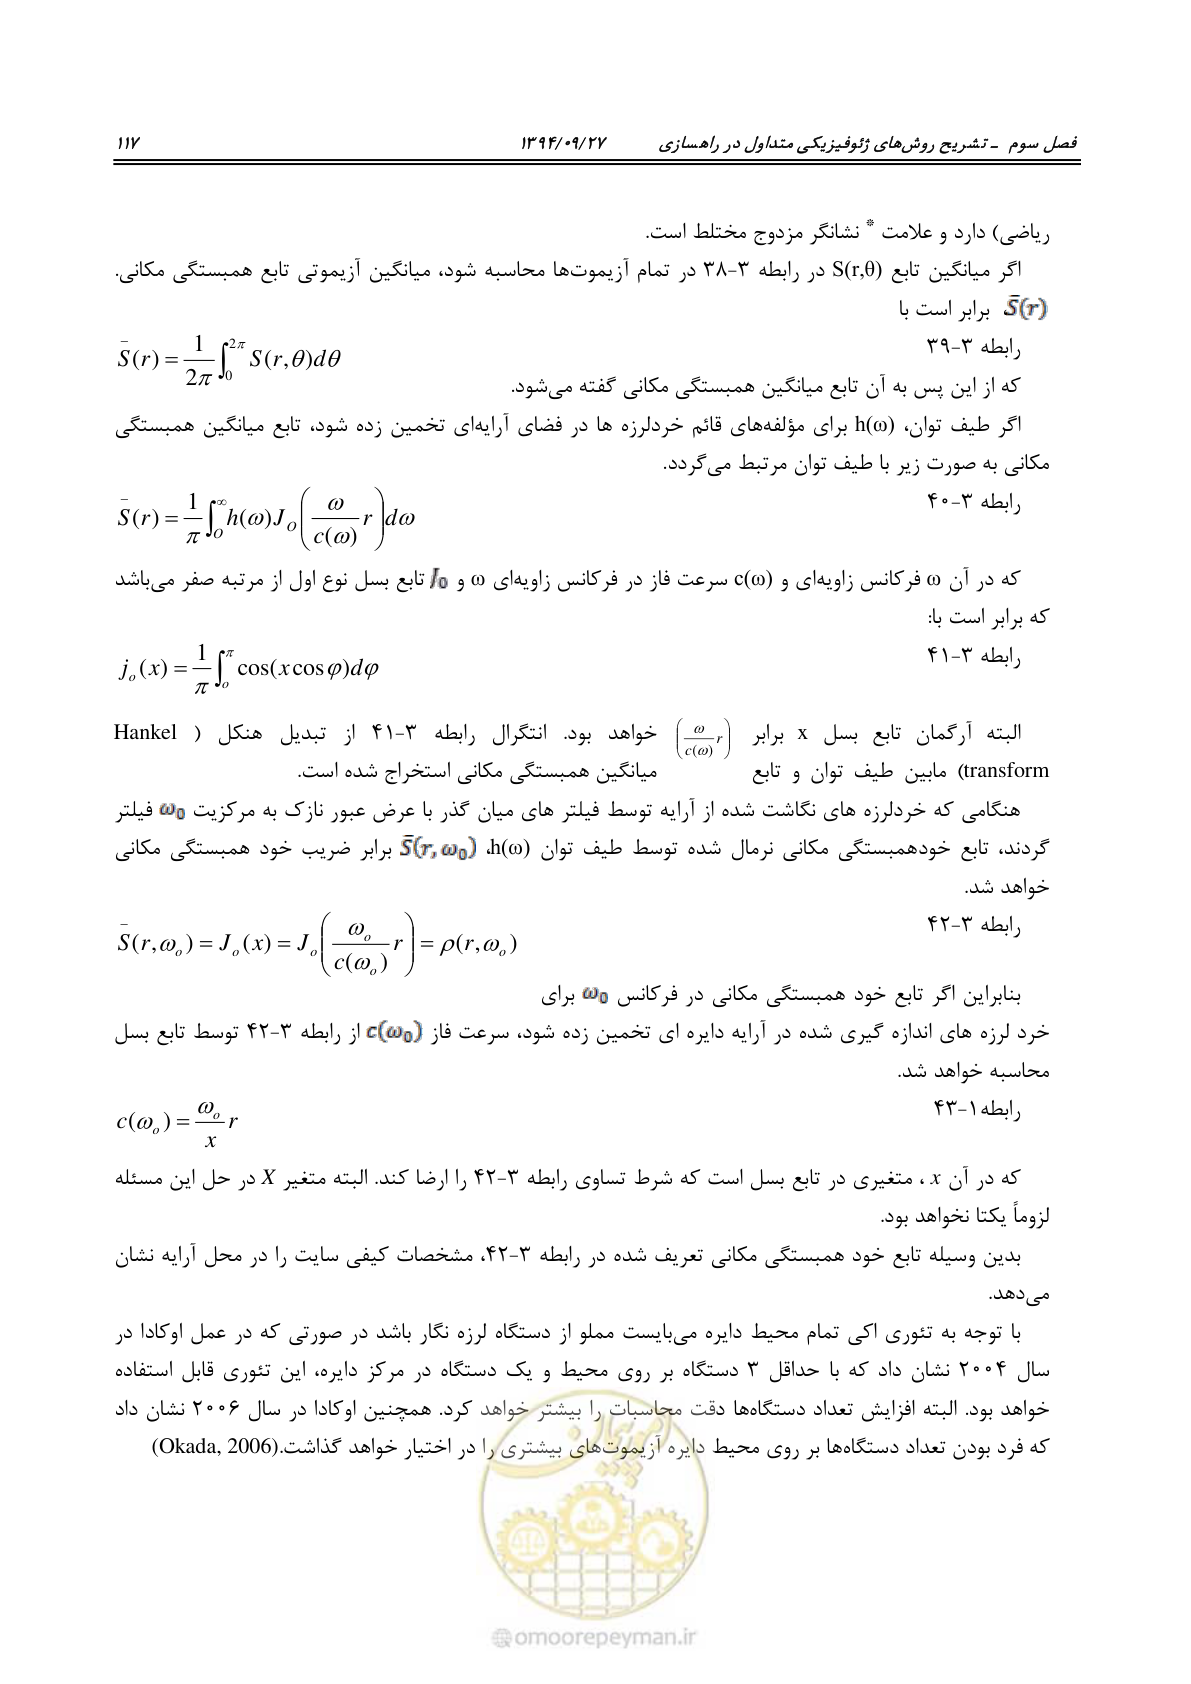 فصل سوم ـ تشریح روش‌های ژئوفیزیکی متداول در راهسازی ۱۳۹۴/۰۹/۲۷ ۱۱۷
ریاضی) دارد و علامت * نشانگر مزدوج مختلط است.
اگر میانگین تابع S(r,θ) در رابطه ۳-۳۸ در تمام آزیموت‌ها محاسبه شود، میانگین آزیموتی تابع همبستگی مکانی.
S̄(r)، برابر است با
رابطه ۳-۳۹ S̄(r) = \frac{1}{2π} ∫_0^{2π} S(r,θ)dθ
که از این پس به آن تابع میانگین همبستگی مکانی گفته می‌شود.
اگر طیف توان، h(ω) برای مؤلفه‌های قائم خردلرزه ها در فضای آرایه‌ای تخمین زده شود، تابع میانگین همبستگی
مکانی به صورت زیر با طیف توان مرتبط می‌گردد.
رابطه ۳-۴۰ S̄(r) = \frac{1}{π} ∫_O^∞ h(ω)J_O(\frac{ω}{c(ω)} r)dω
که در آن ω فرکانس زاویه‌ای و c(ω) سرعت فاز در فرکانس زاویه‌ای ω و J₀ تابع بسل نوع اول از مرتبه صفر می‌باشد
که برابر است با:
رابطه ۳-۴۱ j_o(x) = \frac{1}{π} ∫_o^π cos(x cos φ)dφ
البته آرگمان تابع بسل x برابر (\frac{ω}{c(ω)} r) خواهد بود. انتگرال رابطه ۳-۴۱ از تبدیل هنکل ( Hankel
transform) مابین طیف توان و تابع میانگین همبستگی مکانی استخراج شده است.
هنگامی که خردلرزه های نگاشت شده از آرایه توسط فیلتر های میان گذر با عرض عبور نازک به مرکزیت ω₀ فیلتر
گردند، تابع خودهمبستگی مکانی نرمال شده توسط طیف توان h(ω)، S̄(r, ω₀) برابر ضریب خود همبستگی مکانی
خواهد شد.
رابطه ۳-۴۲ S̄(r,ω_o) = J_o(x) = J_o(\frac{ω_o}{c(ω_o)} r) = ρ(r,ω_o)
بنابراین اگر تابع خود همبستگی مکانی در فرکانس ω₀ برای
خرد لرزه های اندازه گیری شده در آرایه دایره ای تخمین زده شود، سرعت فاز c(ω₀) از رابطه ۳-۴۲ توسط تابع بسل
محاسبه خواهد شد.
رابطه۱-۴۳ c(ω_o) = \frac{ω_o}{x} r
که در آن x ، متغیری در تابع بسل است که شرط تساوی رابطه ۳-۴۲ را ارضا کند. البته متغیر X در حل این مسئله
لزوماً یکتا نخواهد بود.
بدین وسیله تابع خود همبستگی مکانی تعریف شده در رابطه ۳-۴۲، مشخصات کیفی سایت را در محل آرایه نشان
می‌دهد.
با توجه به تئوری اکی تمام محیط دایره می‌بایست مملو از دستگاه لرزه نگار باشد در صورتی که در عمل اوکادا در
سال ۲۰۰۴ نشان داد که با حداقل ۳ دستگاه بر روی محیط و یک دستگاه در مرکز دایره، این تئوری قابل استفاده
خواهد بود. البته افزایش تعداد دستگاه‌ها دقت محاسبات را بیشتر خواهد کرد. همچنین اوکادا در سال ۲۰۰۶ نشان داد
که فرد بودن تعداد دستگاه‌ها بر روی محیط دایره آزیموت‌های بیشتری را در اختیار خواهد گذاشت.(Okada, 2006)
امور پیمان
omoorepeyman.ir